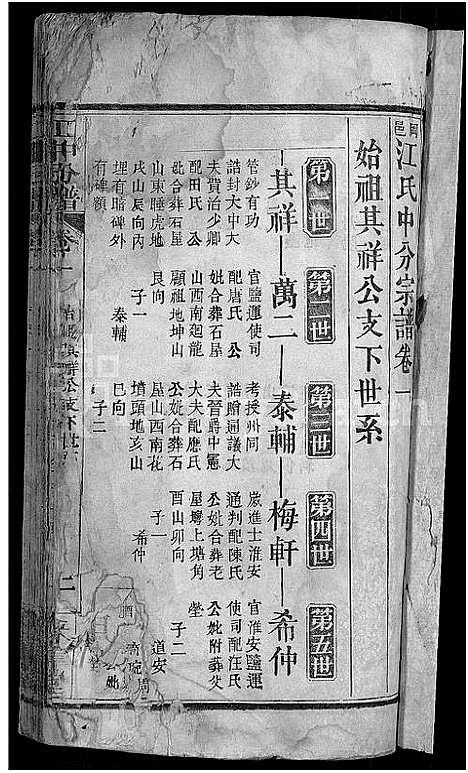 岡邑江氏中分宗譜卷一
始祖其祥公支下世系
第一世
第二世
第三世
第四世
第五世
其祥
萬二
泰輔
梅軒
希仲
管鈔有功
誥封大中大
夫貲治少卿
配田氏 公
妣合葬石屋
山東睡虎地
戌山辰向內
埋有暗碑外
有碑額
官鹽運使司
配唐氏 公
妣合葬石屋
山西南廻龍
顧祖地坤山
艮向
子一
泰輔
考授州同
誥贈通議大
夫晉爵中憲
大夫配應氏
公妣合葬石
屋山西南花
墳頭地亥山
巳向
子二
歲進士淮安
通判配陳氏
公妣合葬老
屋塝上塘角
酉山卯向
子一
希仲
官淮安鹽運
使司配汪氏
公妣附葬父
塋
子二
道安
江中分譜
卷一
始祖其祥公支下世系